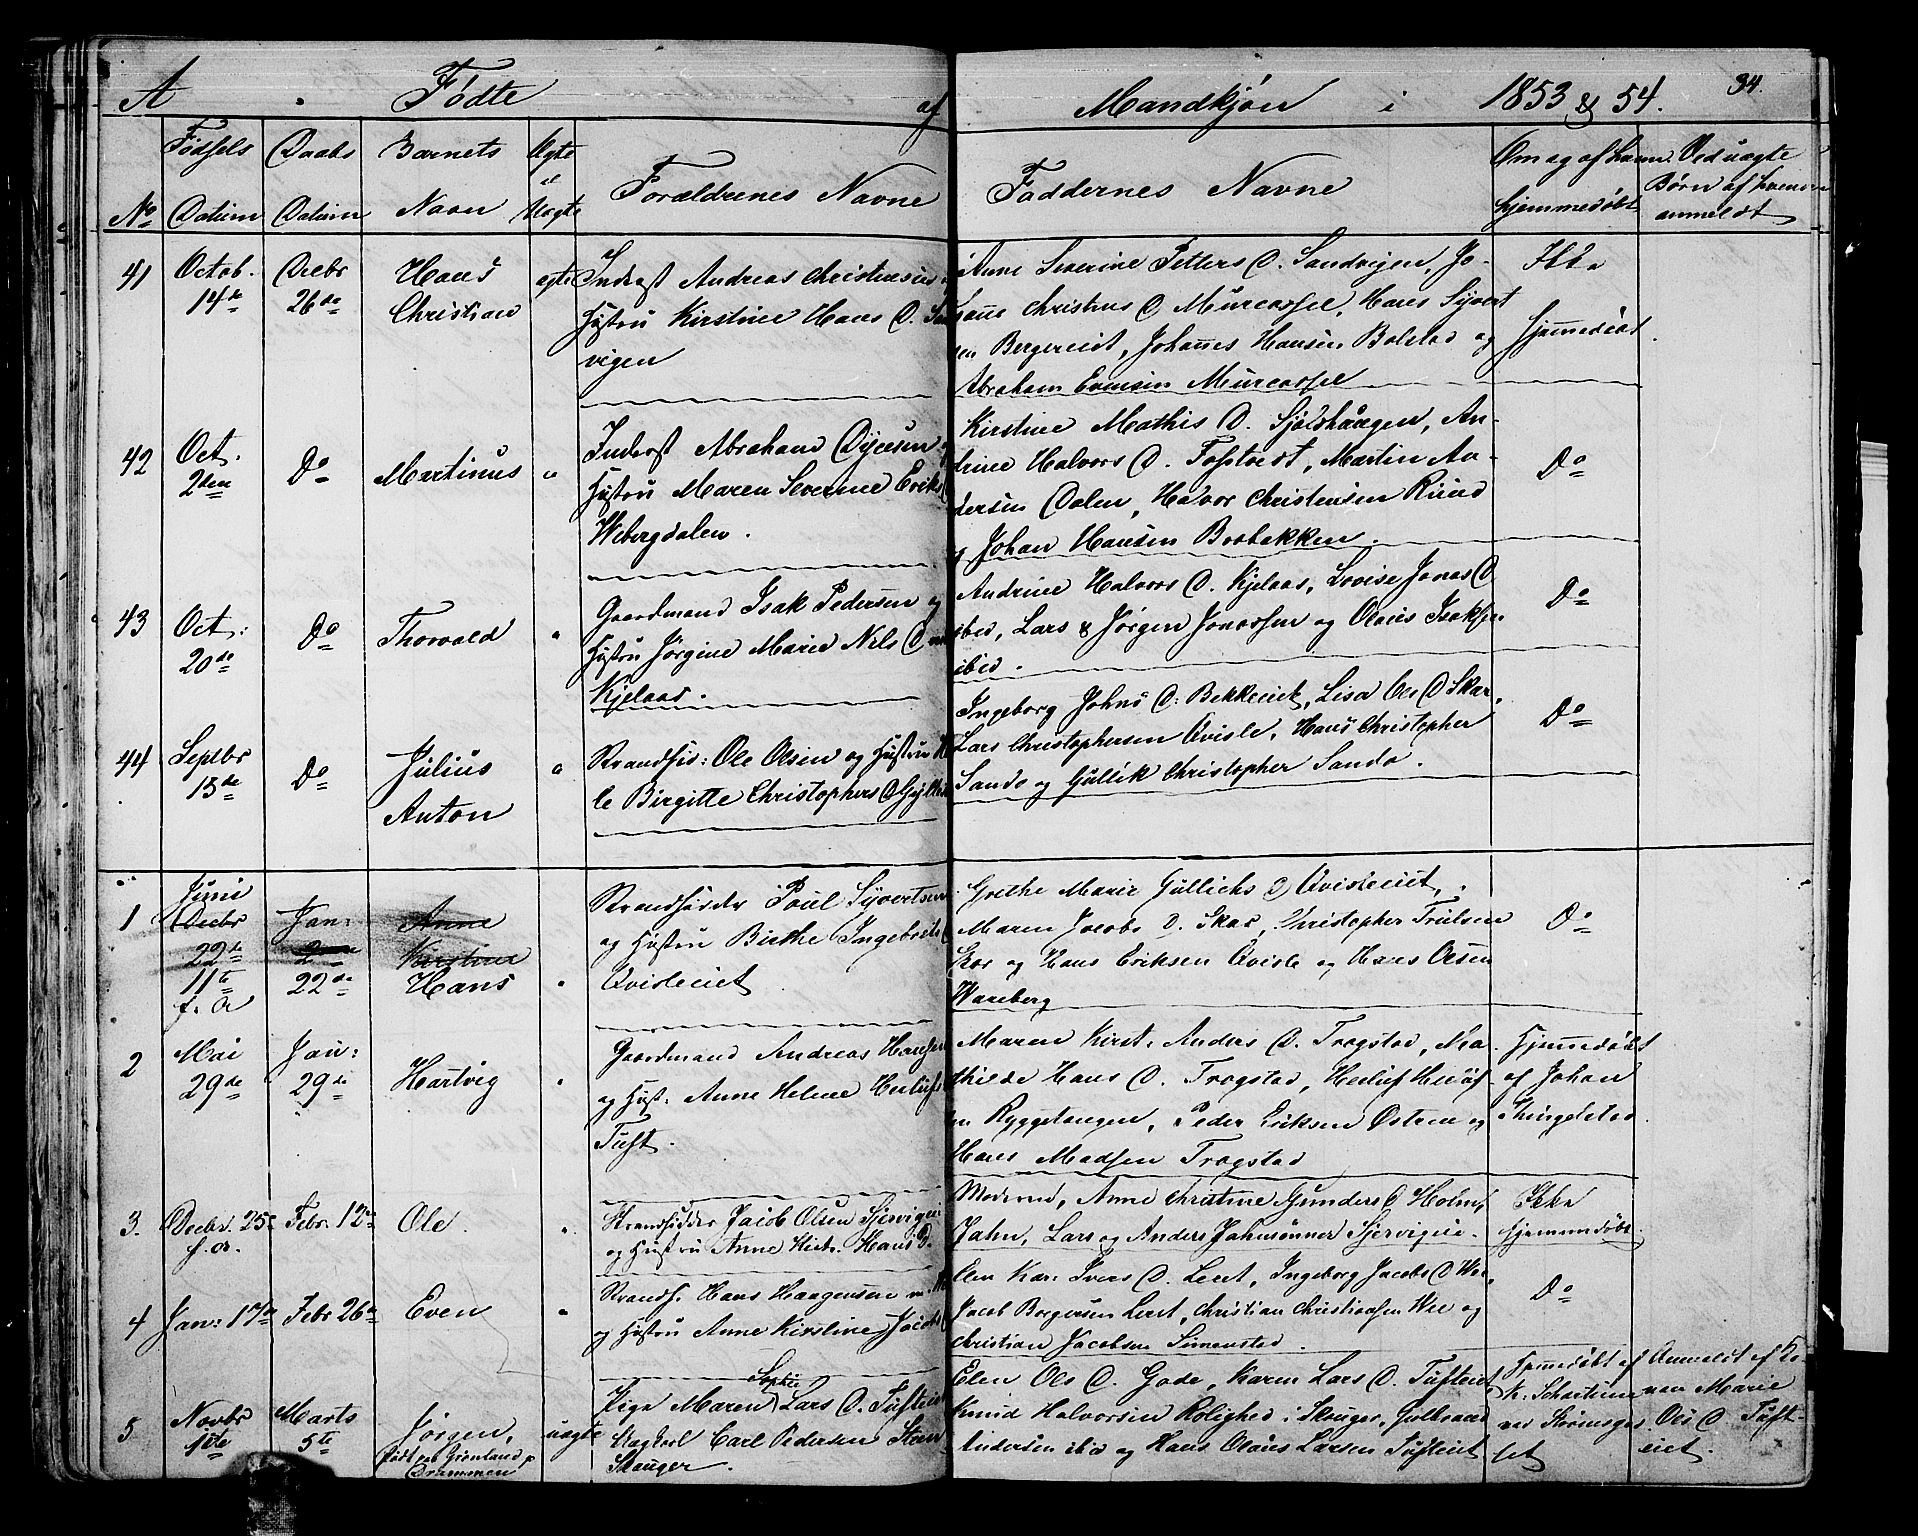 A. Födte af Mandkjön i 1853 & 54. 34.
No Födsels Datum Daabs Datum Barnets Navn Ægte el Uægte Forældrenes Navne Faddernes Navne Om og af hvem hjemmedöbt Ved uægte Börn af hvem anmeldt
41 Octob. 14de Decbr 26de Hans Christian ægte
Inderst Andreas Christensen
Hustru Kirstine Hans D. San
vigen
Anne Severine Petters D. Sandvigen, Jo-
hanne Christens D Hans Syvert
sen Bergereiet, Johannes Hansen Bolstad og
Abraham Evensen
Ikke
hjemmedöbt
42 Oct. 2den Do Martinus "
Inderst Abraham
Hustru Maren Severine Eriks
Webergdalen.
Kirstine Mathis D. Sjölshaugen, An-
drine Halvors D. Fostvedt, Martin An-
dersen Dalen, Halvor Christensen Ruud
og Johan Hansen Brobakken.
Do
43 Oct: 20de Do Thorvald "
Gaardmand Isak Pedersen og
Hustru Jörgine Marie Nils D
Kjelaas.
Andrine Halvors D. Kjelaas, Lovise Jonas D
ibid, Lars & Jörgen Jonassen og Olaus Isaksen
ibid.
Do
44 Septbr 13de Do Julius Anton "
Strandsid: Ole Olsen og Hustru
le Birgitte Christophers D
Ingeborg Johns D: Bekkeeiet, Lisa Ols D Skar,
Lars Christophersen Qvisle, Hans Christopher
Sando og Gullik Christopher Sando.
Do
1 Juni Decbr 22de 11te f. A Jan: 22de Anne Kirstine Hans "
Strandsidder Poul Syvertsen
og Hustru Birthe Ingebrets
Qvisleeiet
Grethe Marie Gullichs D Qvisleeiet,
Maren Jacobs D. Skar, Christopher Trulsen
Skar og Hans Eriksen Qvisle og Hans Olsen
Wareberg
Do
2 Mai 29de Jan: 29de Hartvig "
Gaardmand Andreas Hansen
og Hust: Anne Helene Herlufs
Tuft.
Maren Kirst. Anders D. Trogstad, Ma-
thilde Hans D. Trogstad, Herluf Herluf-
sen Ryggetangen, Peder Eriksen Östern og
Hans Madsen Trogstad
Hjemmedöbt
af Johan
Thingelstad
3. Decbr. 25. f. A. Febr. 12te Ole. "
Strandsidder Jacob Olsen Sjervigeie
og Hustru Anne Kirst. Hans D.
Moderen, Anne Christine Gunders D Holm,
Jahn, Lars og Anders Jahnsönner Sjervigeie.
Ikke
hjemmedöbt
4 Jan: 17de Febr 26de Even "
Strandf. Hans Haagensen
og Hustru Anne Kirstine Jacobs
Elen Kar: Ivers D. Leret, Ingeborg Jacobs D
Jacob Borgersen Leret, Christian Christiansen Wee og
Christian Jacobsen Simenstad.
Do
5 Novbr 1ste Marts 5te Jörgen, födt paa Grönland p Drammen uægte
Pige Maren Sophie Lars D. Tufteeiet
Ungkarl Carl Pedersen
Skauger.
Elen Ols D. Gode, Karen Lars D. Tufteeiet
Knud Halvorsen Rolighed i Skauger, Gulbrand
Andersen ibid og Hans Olaus Larsen Tufteeiet
Hjemedöbt af
Anmeldt af
nan Marie
Ols D. Tuft-
eiet.